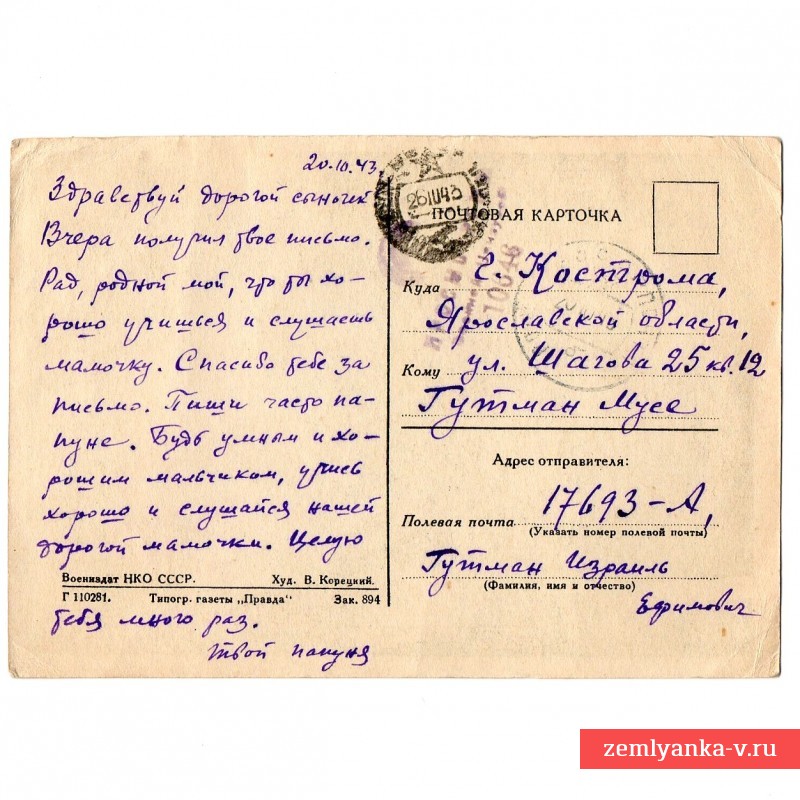 20.10.43
Здравствуй дорогой сыночек
Вчера получил твое письмо.
Рад, родной мой, что ты хо-
рошо учишься и слушаешь
мамочку. Спасибо тебе за
письмо. Пиши часто па-
пуне. Будь умным и хо-
рошим мальчиком, учись
хорошо и слушайся нашей
дорогой мамочки. Целую
Воениздат НКО СССР. Худ. В. Корецкий.
Г 110281. Типогр. газеты „Правда“ Зак. 894
тебя много раз.
Твой папуня
ПОЧТОВАЯ КАРТОЧКА
Куда г. Кострома,
Ярославской области,
Кому ул. Шагова 25 кв. 12
Гутман Мусе
Адрес отправителя:
Полевая почта 17693-А,
(Указать номер полевой почты)
Гутман Израиль
(Фамилия, имя и отчество)
Ефимович
zemlyanka-v.ru